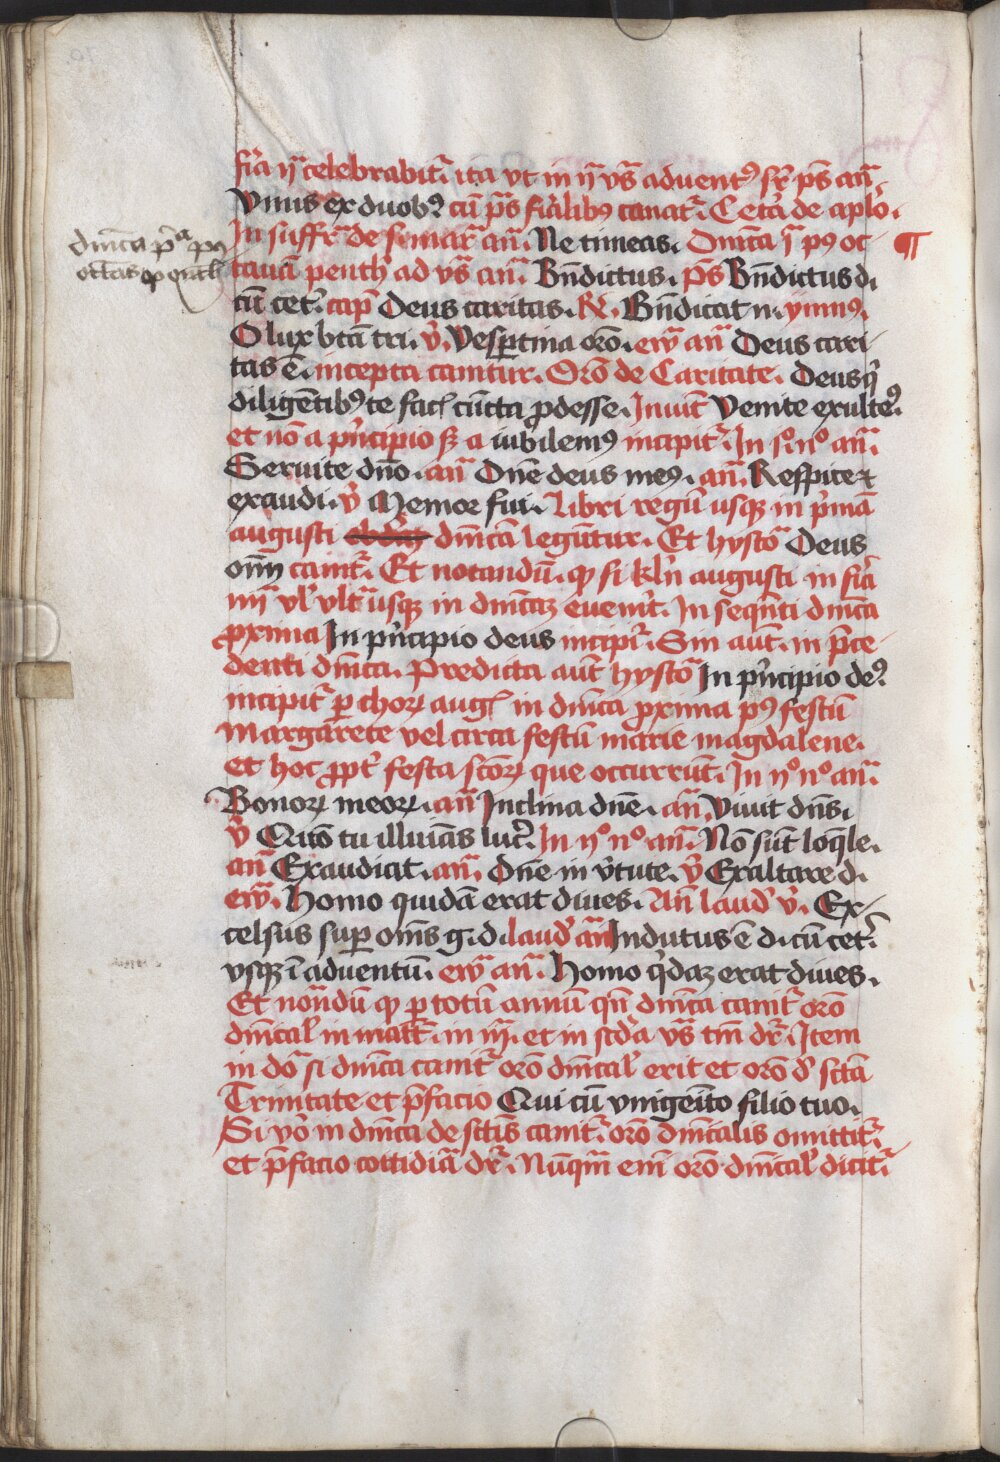 fria ij celebrabit᷑ ita vt in ij vs̄ advent⁹ sr̄ ps̄ an̄
Vnus ex duob⁹ cū ps̄ fialib⁹ cantat᷑. Cetā de aplō.
In suffr̄ de s mar̄ an̄. Ne timeas. Dn̄ica j p⁹ oc
dn̄ica pͣ p⁹
octāas penth
tauā penth ad vs̄ an̄. Bn̄dictus. ps̄ Bn̄dictus d.
cū cet᷑. cap̄ Deus caritas. R̄. Bn̄dicat n. ymn⁹.
O lux btā tri. v̄. Vesp̄tina orō. ew̄ an̄ Deus cari
tas ē. incepta cantur. Orō de Caritate. Deus q̄
diligētib⁹ te fac̄ cūcta ꝓdesse. Inuit̄ Venite exulte⁹.
et nō a p̄ncipio sꝫ a iubilem⁹ incipit᷑. In j° n° an̄.
Seruite dn̄o. an̄ Dn̄e deus me⁹. an̄. Respice et
exaudi. v̄ Memor fui. Libri regū usqꝫ in p̄mā
augusti dn̄icā legūtur. Et hystō Deus
om̄ canit᷑. Et notandū. qꝫ si kl̄n augusti in fr̄ia
iiij vl̄ vlt̄ usqꝫ in dn̄icaꝫ euen̄it. In seqn̄ti dn̄ica
ꝓxima In p̄ncipio deus incipit᷑. Sin aut̄. in p̄ce
denti dn̄ica. Predicta aut̄ hystō In p̄ncipio de⁹
incipit᷑ p̱ choꝝ auḡ in dn̄ica ꝓxima p⁹ festū
Margarete vel circa festū marie magdalene.
et hoc ꝓpt᷑ festa sc̄oꝝ que occurrūt. In ij° n° an̄.
Bonoꝝ meoꝝ. an̄ Inclina dn̄e. an̄. Viuit dn̄s.
v̄ Qm̄ tu illuīas luc̄. In iij° n° an̄. Nō sūt loq̄le.
an̄ Exaudiat. an̄. Dn̄e in v̄tute. v̄ Exaltare d.
ew̄. Homo quidā erat diues. An̄ laud̄ v̄. Ex
celsus sup̱ om̄s g. d. laud̄ an̄ Indutus ē d. cū cet᷑.
vsqꝫ ī aduentū. ew̄ an̄. Homo q̄daꝫ erat diues.
Et notandū qꝫ p̱ totū annū qn̄ dn̄ica canit᷑ orō
dn̄ical̄ in matt̄. in iij. et in sc̄da vs̄ tm̄ dr̄. Item
in dō si dn̄ica canit᷑ orō dn̄ical̄ erit et orō d̄ sctā
Trinitate et p̄facio Qui cū vnigeīto filio tuo.
Si v̄o in dn̄ica de sctīs canit᷑. orō dn̄icalis omittit᷑.
et p̄facio cottidiā dr̄. Nūqm̄ eni orō dn̄ical̄ dicit᷑.